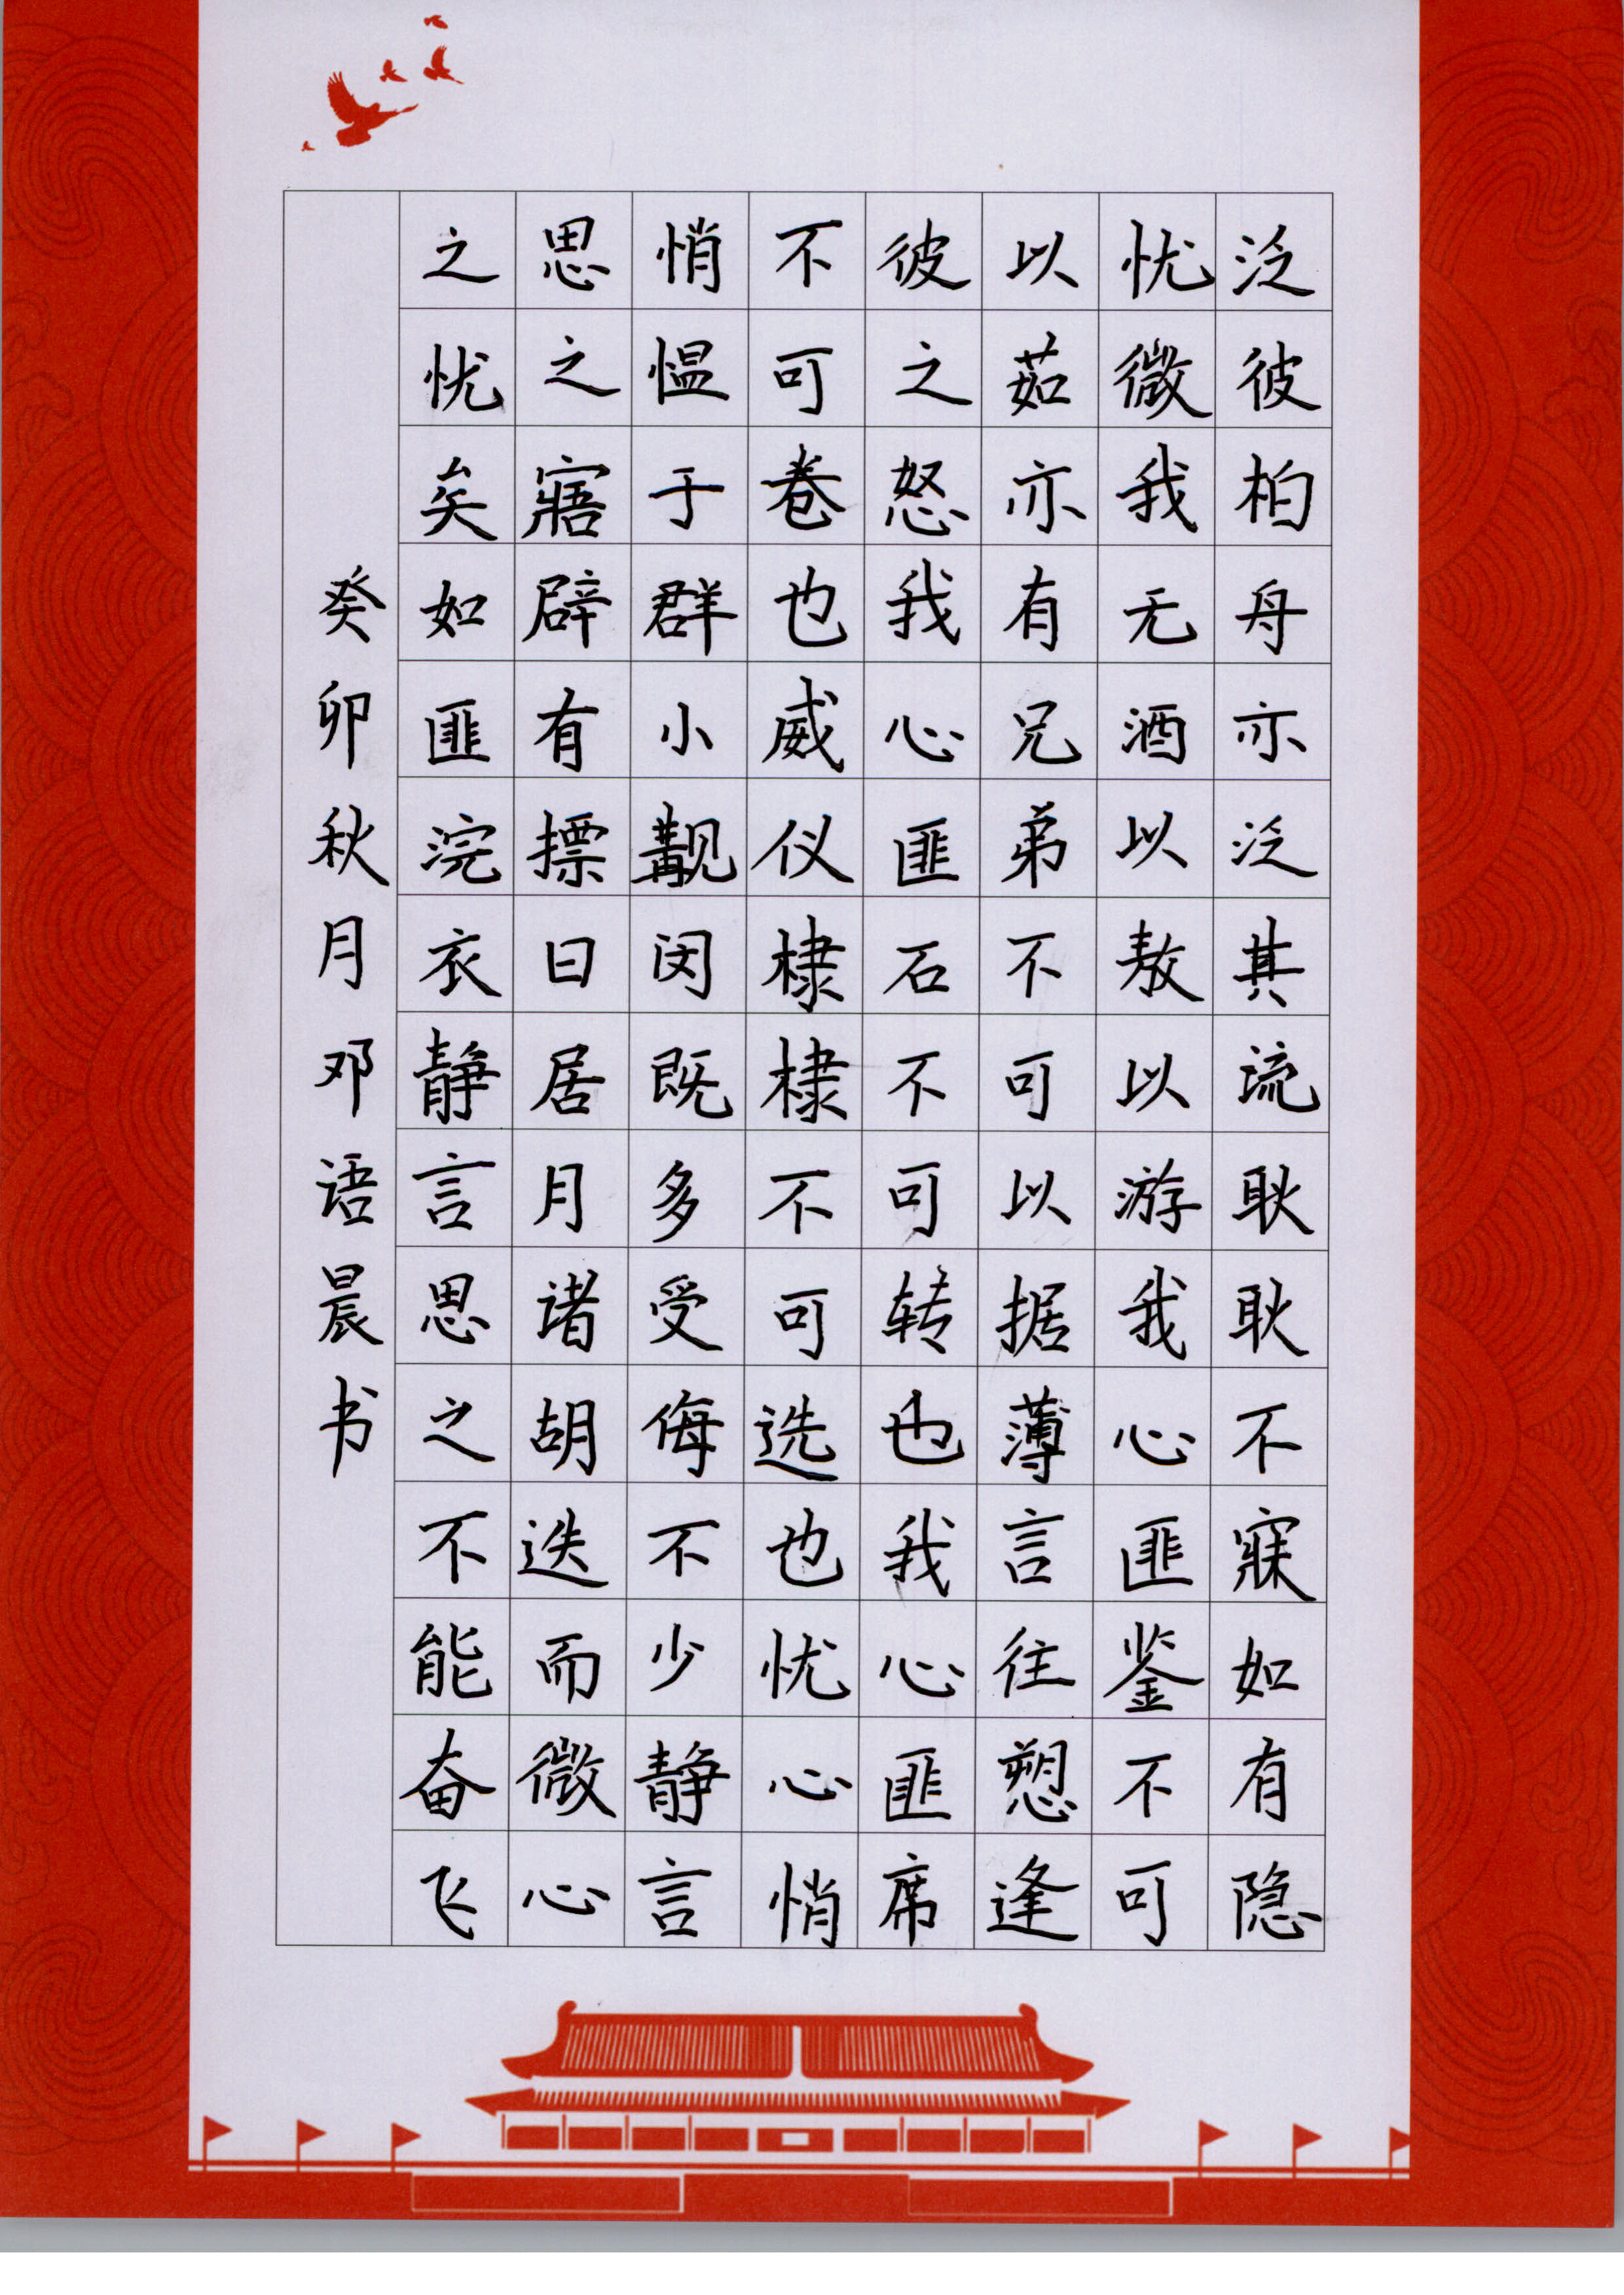 泛彼柏舟亦泛其流耿耿不寐如有隐
忧微我无酒以敖以游我心匪鉴不可
以茹亦有兄弟不可以据薄言往愬逢
彼之怒我心匪石不可转也我心匪席
不可卷也威仪棣棣不可选也忧心悄
悄愠于群小觏闵既多受侮不少静言
思之寤辟有摽日居月诸胡迭而微心
之忧矣如匪浣衣静言思之不能奋飞
癸卯秋月邓语晨书